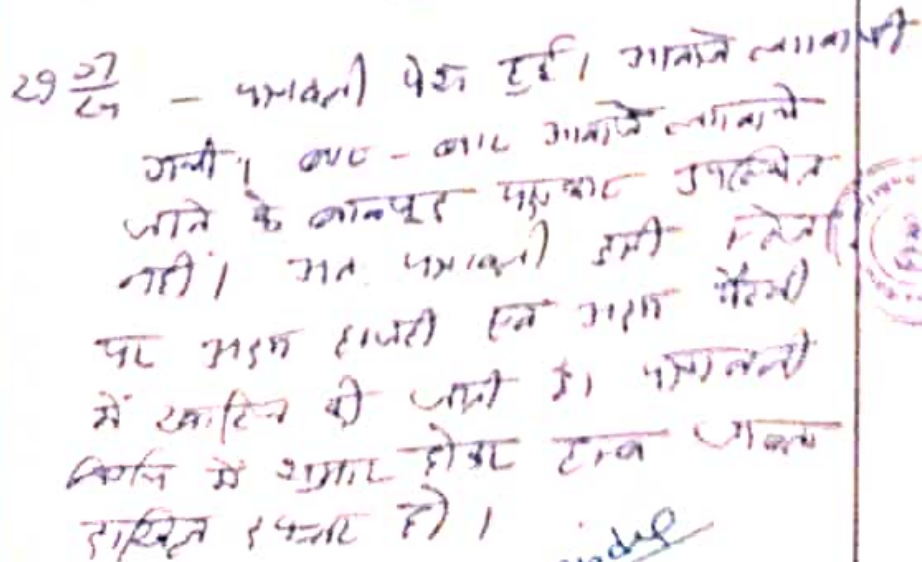 29 - पत्रावली पेश हुई। आवाजे लगवायी
गयी। बार-बार आवाजे लगवाये
जाने के बावजूद पक्षकार उपस्थित
नहीं। अतः पत्रावली इसी स्टेज
पर अदम हाजरी एवं अदम पैरवी
में खारिज की जाती है। पत्रावली
में शुमार होकर दाखिल
दफ्तर हो।